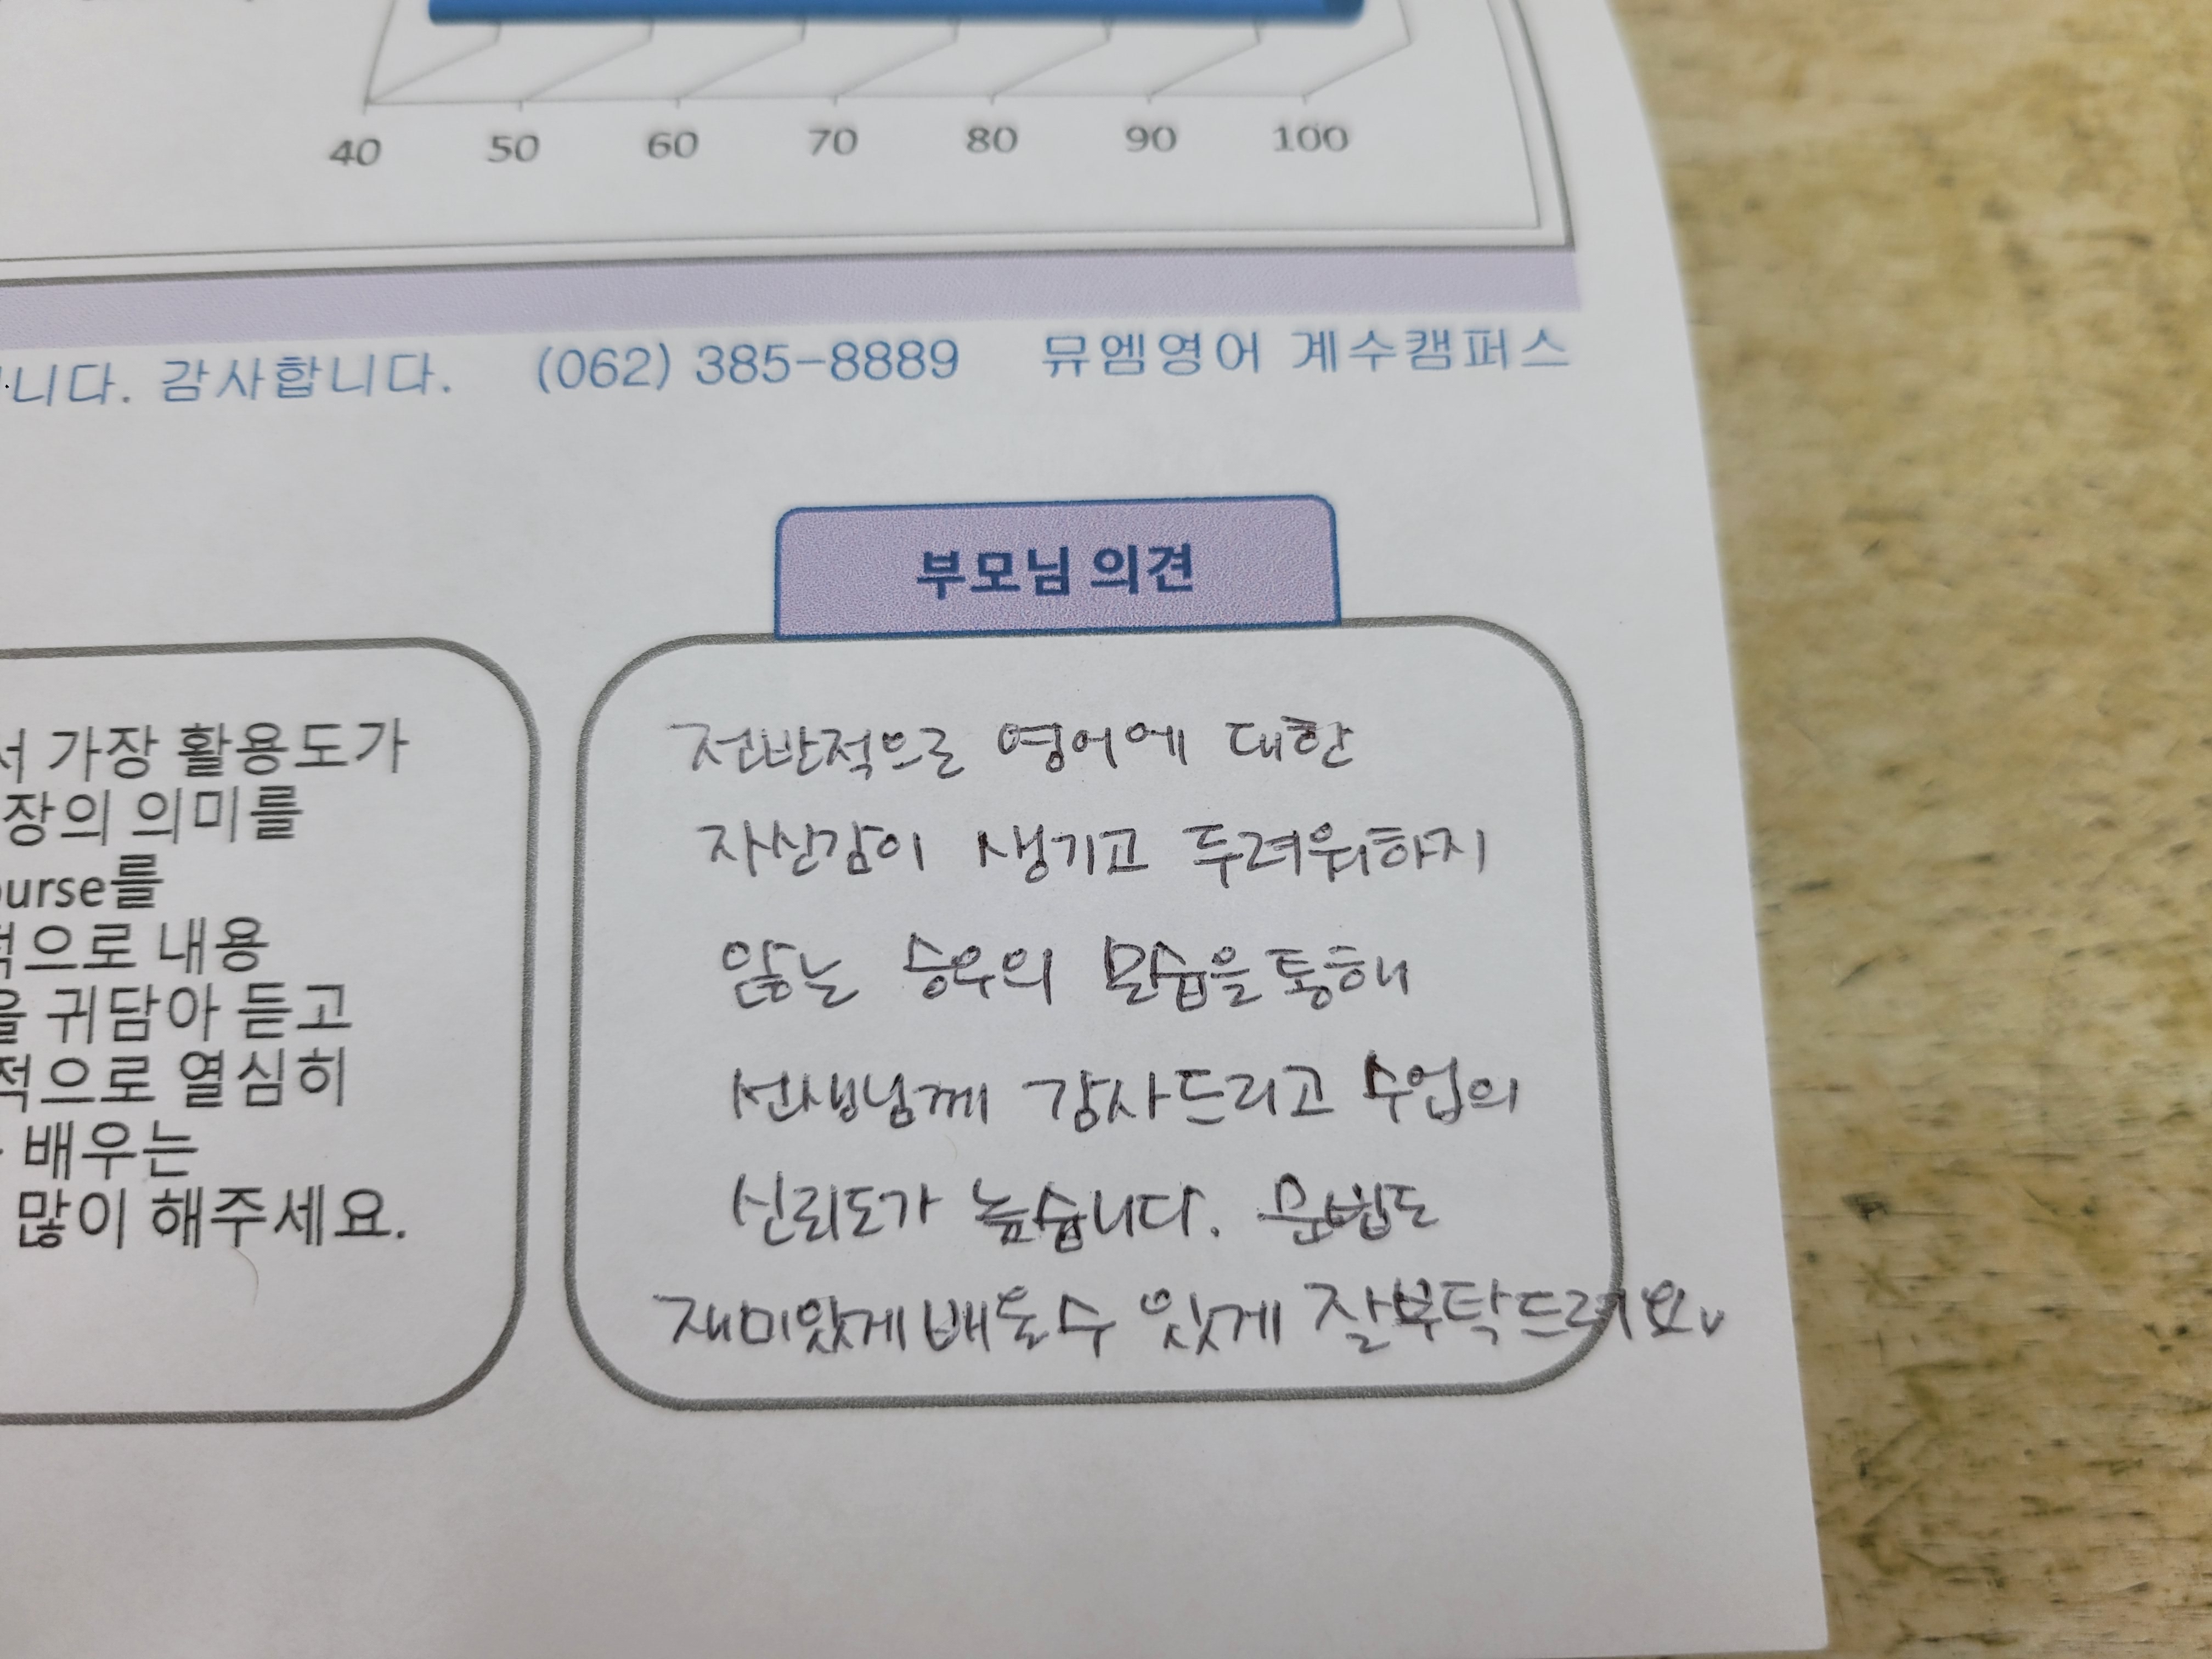 40 50 60 70 80 90 100
니다. 감사합니다. (062) 385-8889 뮤엠영어 계수캠퍼스
부모님 의견
서 가장 활용도가
장의 의미를
ourse를
적으로 내용
을 귀담아 듣고
적으로 열심히
배우는
많이 해주세요.
전반적으로 영어에 대한
자신감이 생기고 두려워하지
않는 승우의 모습을 통해
선생님께 감사드리고 수업의
신뢰도가 높습니다. 문법도
재미있게 배울수 있게 잘부탁드려요